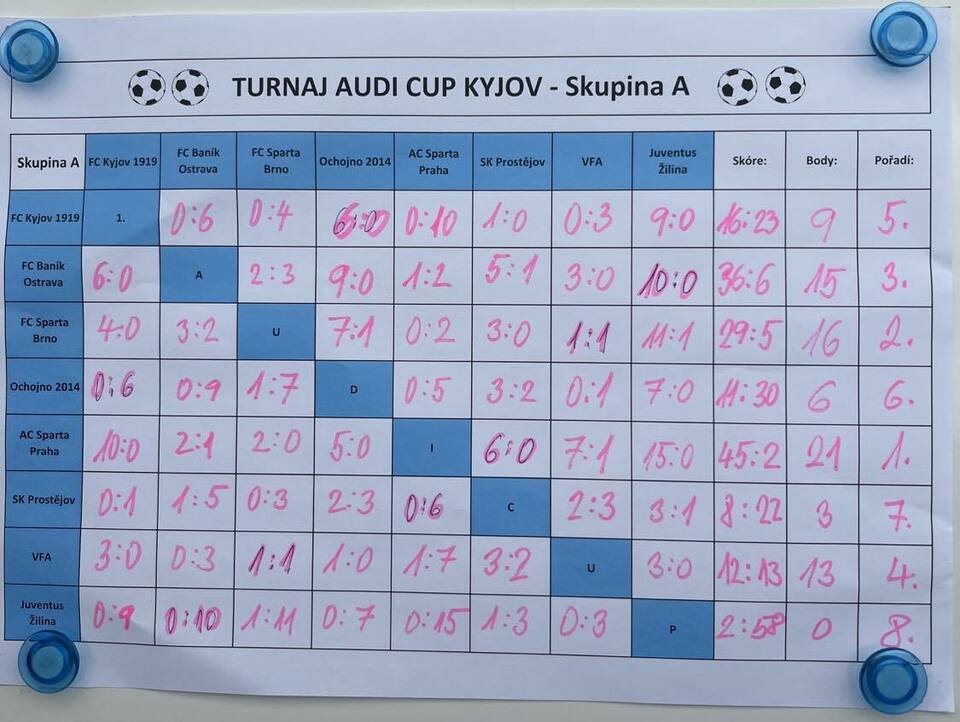 TURNAJ AUDI CUP KYJOV - Skupina A
Skupina A FC Kyjov 1919 FC Baník Ostrava FC Sparta Brno Ochojno 2014 AC Sparta Praha SK Prostějov VFA Juventus Žilina Skóre: Body: Pořadí:
FC Kyjov 1919 1. 0:6 0:4 6:0 0:10 1:0 0:3 9:0 16:23 9 5.
FC Baník Ostrava 6:0 A 2:3 9:0 1:2 5:1 3:0 10:0 36:6 15 3.
FC Sparta Brno 4:0 3:2 U 7:1 0:2 3:0 1:1 11:1 29:5 16 2.
Ochojno 2014 0:6 0:9 1:7 D 0:5 3:2 0:1 7:0 11:30 6 6.
AC Sparta Praha 10:0 2:1 2:0 5:0 I 6:0 7:1 15:0 45:2 21 1.
SK Prostějov 0:1 1:5 0:3 2:3 0:6 C 2:3 3:1 8:22 3 7.
VFA 3:0 0:3 1:1 1:0 1:7 3:2 U 3:0 12:13 13 4.
Juventus Žilina 0:9 0:10 1:11 0:7 0:15 1:3 0:3 P 2:58 0 8.